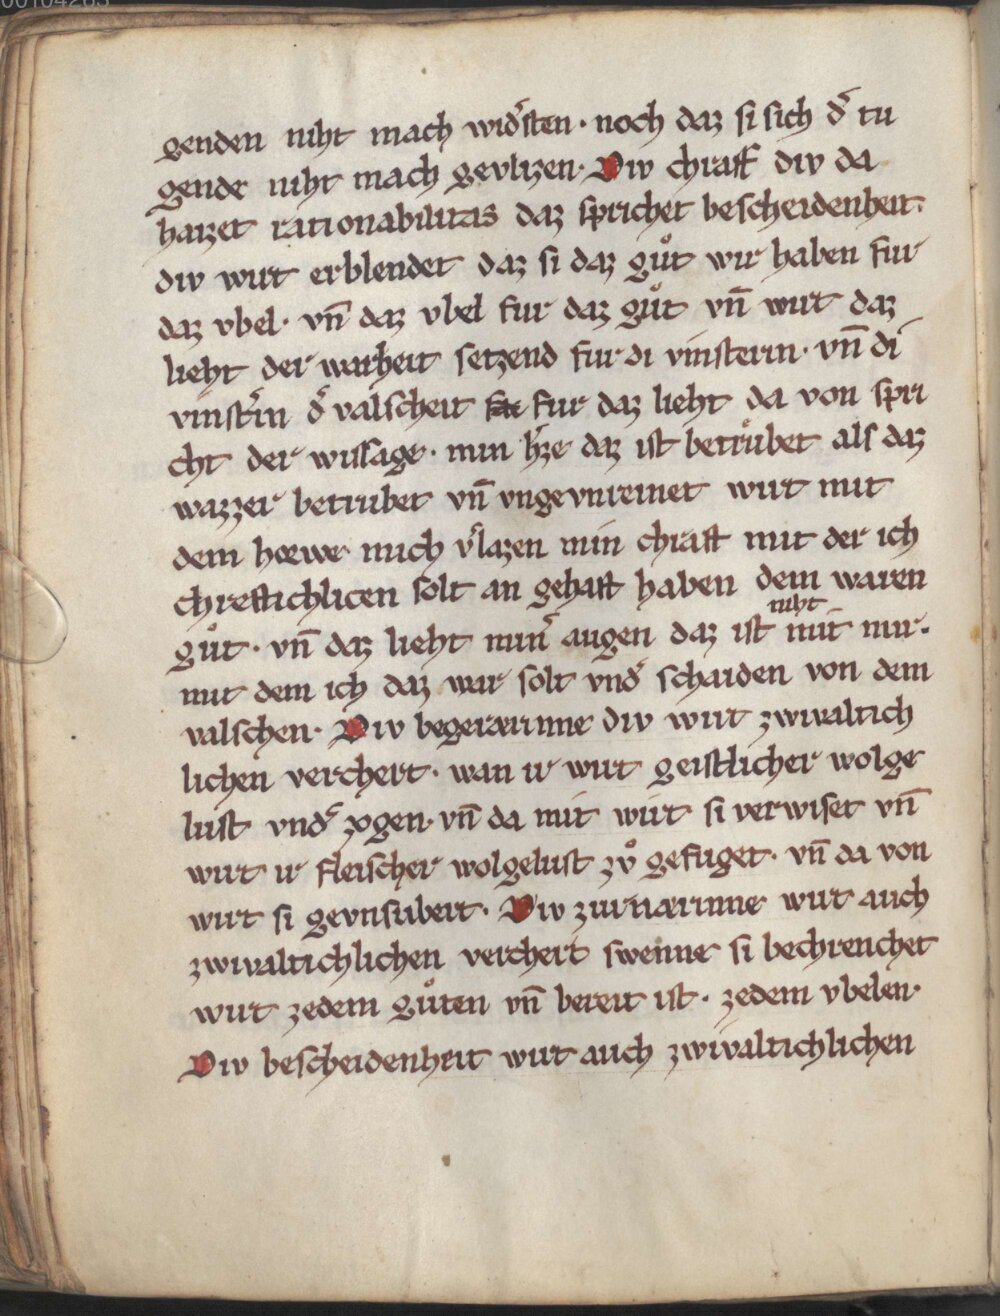 genden niht mach widˢsten · noch daz si sich dˢ tu
gende niht mach gevlizen · Div chraft div da
haizet rationabilitas daz sprichet bescheidenheit ·
div wirt erblendet daz si daz guͦt wir haben fur
daz vbel · vn̄ daz vbel fur daz guͦt vn̄ wirt daz
lieht der warheit setzend fur di vinsterin · vn̄ di
vinstˢin dˢ valscheit fur daz lieht da von spri
cht der wissage · min hˢze daz ist betruͤbet als daz
wazzer betrubet vn̄ vngevnreinet wirt mit
dem hoewe mich vˢlazen min chraft mit der ich
chreftichlicen solt an gehaft haben dem waren
guͦt · vn̄ daz lieht minˢ augen daz ist niht mit mir ·
mit dem ich daz war solt vndˢ schaiden von dem
valschen · Div begerærinne div wirt zwivaltich
lichen verchert · wan ir wirt geistlicher wolge
lust vndˢ zogen · vn̄ da mit wirt si verwiset vn̄
wirt ir fleischer wolgelust zvͦ gefuget · vn̄ da von
wirt si gevnsubert · Div zurnærinne wirt auch
zwivaltichlichen verchert swenne si bechrenchet
wirt zedem guͦten vn̄ bereit ist · zedem vbelen ·
Div bescheidenheit wirt auch zwivaltichlichen